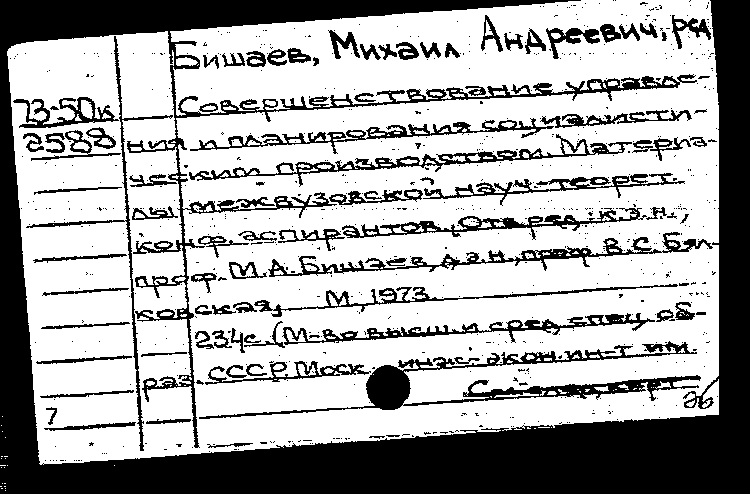 Бишаев, Михаил Андреевич, ред
73-50к
2588
Совершенствование управле-
ния и планирования социалисти-
ческим производством. Материа-
лы межвузовской науч.-теорет.
конф. аспирантов. Отв. ред. к.э.н.,
проф. М.А. Бишаев, д.э.н., проф. В.С. Бял-
ковская, М., 1973.
234с. (М-во высш. и сред. спец. об-
раз. СССР. Моск. инж.-экон. ин-т им.
См. след. карт.
7